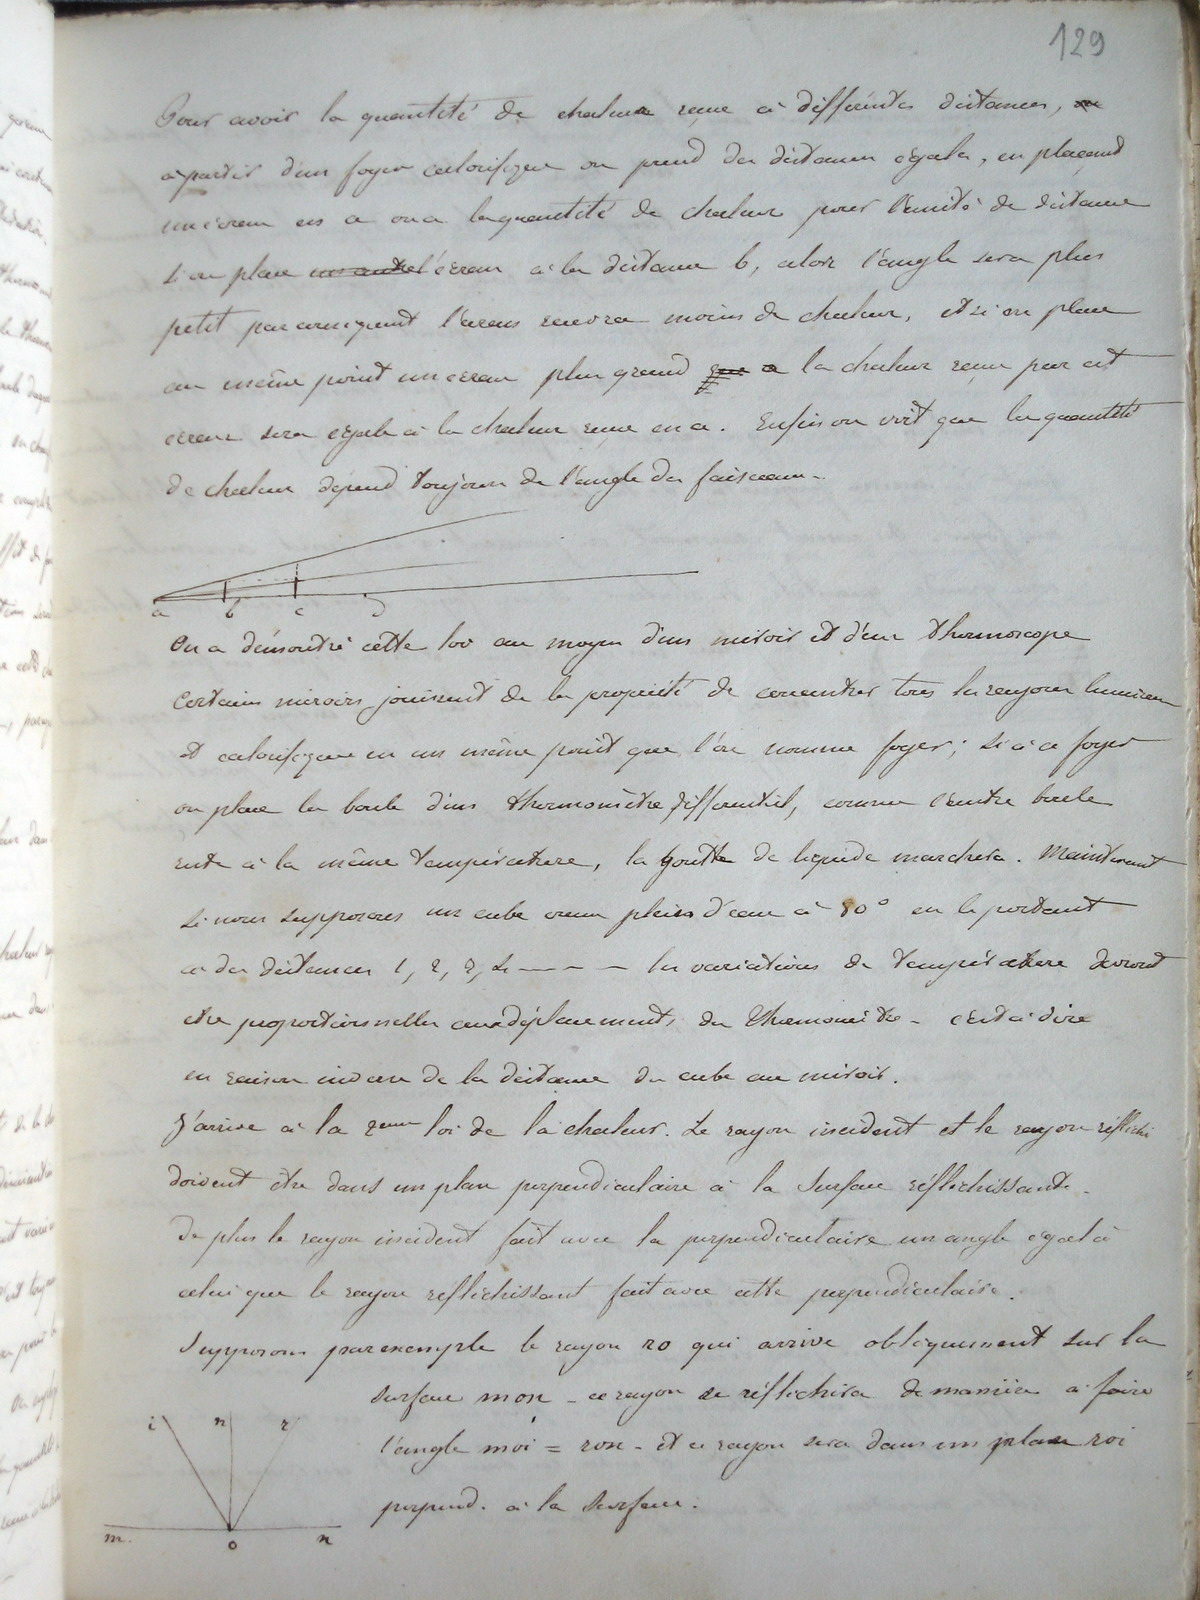 129
Pour avoir la quantité de chaleur reçue à différentes distances,
à partir d'un foyer calorifique on prend des distances égales, en plaçant
un écran en a on a la quantité de chaleur pour l'unité de distance
si on place un autre l'écran à la distance b, alors l'angle sera plus
petit par conséquent l'écran recevra moins de chaleur, et si on place
au même point un écran plus grand la chaleur reçue par cet
écran sera égale à la chaleur reçue en a. Enfin on voit que la quantité
de chaleur dépend toujours de l'angle du faisceau.
a b c d
On a démontré cette loi au moyen d'un miroir et d'un thermoscope
Certains miroirs jouissent de la propriété de concentrer tous les rayons lumineux
et calorifiques en un même point que l'on nomme foyer; si à ce foyer
on place la boule d'un thermomètre différentiel, comme l'autre boule
reste à la même température, la goutte de liquide marchera. Maintenant
si nous supposons un cube creux plein d'eau à 80° en le portant
à des distances 1, 2, 3, 4 – – – – les variations de température devront
être proportionnelles aux déplacements du thermomètre – c'est à dire
en raison inverse de la distance du cube au miroir.
J'arrive à la 2eme loi de la chaleur. Le rayon incident et le rayon réfléchi
doivent être dans un plan perpendiculaire à la surface réfléchissante.
De plus le rayon incident fait avec la perpendiculaire un angle égal à
celui que le rayon réfléchissant fait avec cette perpendiculaire.
Supposons par exemple le rayon ro qui arrive obliquement sur la
surface mon – ce rayon se réfléchira de manière à faire
l'angle moi = ron – et ce rayon sera dans un plan roi
perpend. à la surface.
i n r
m. o n